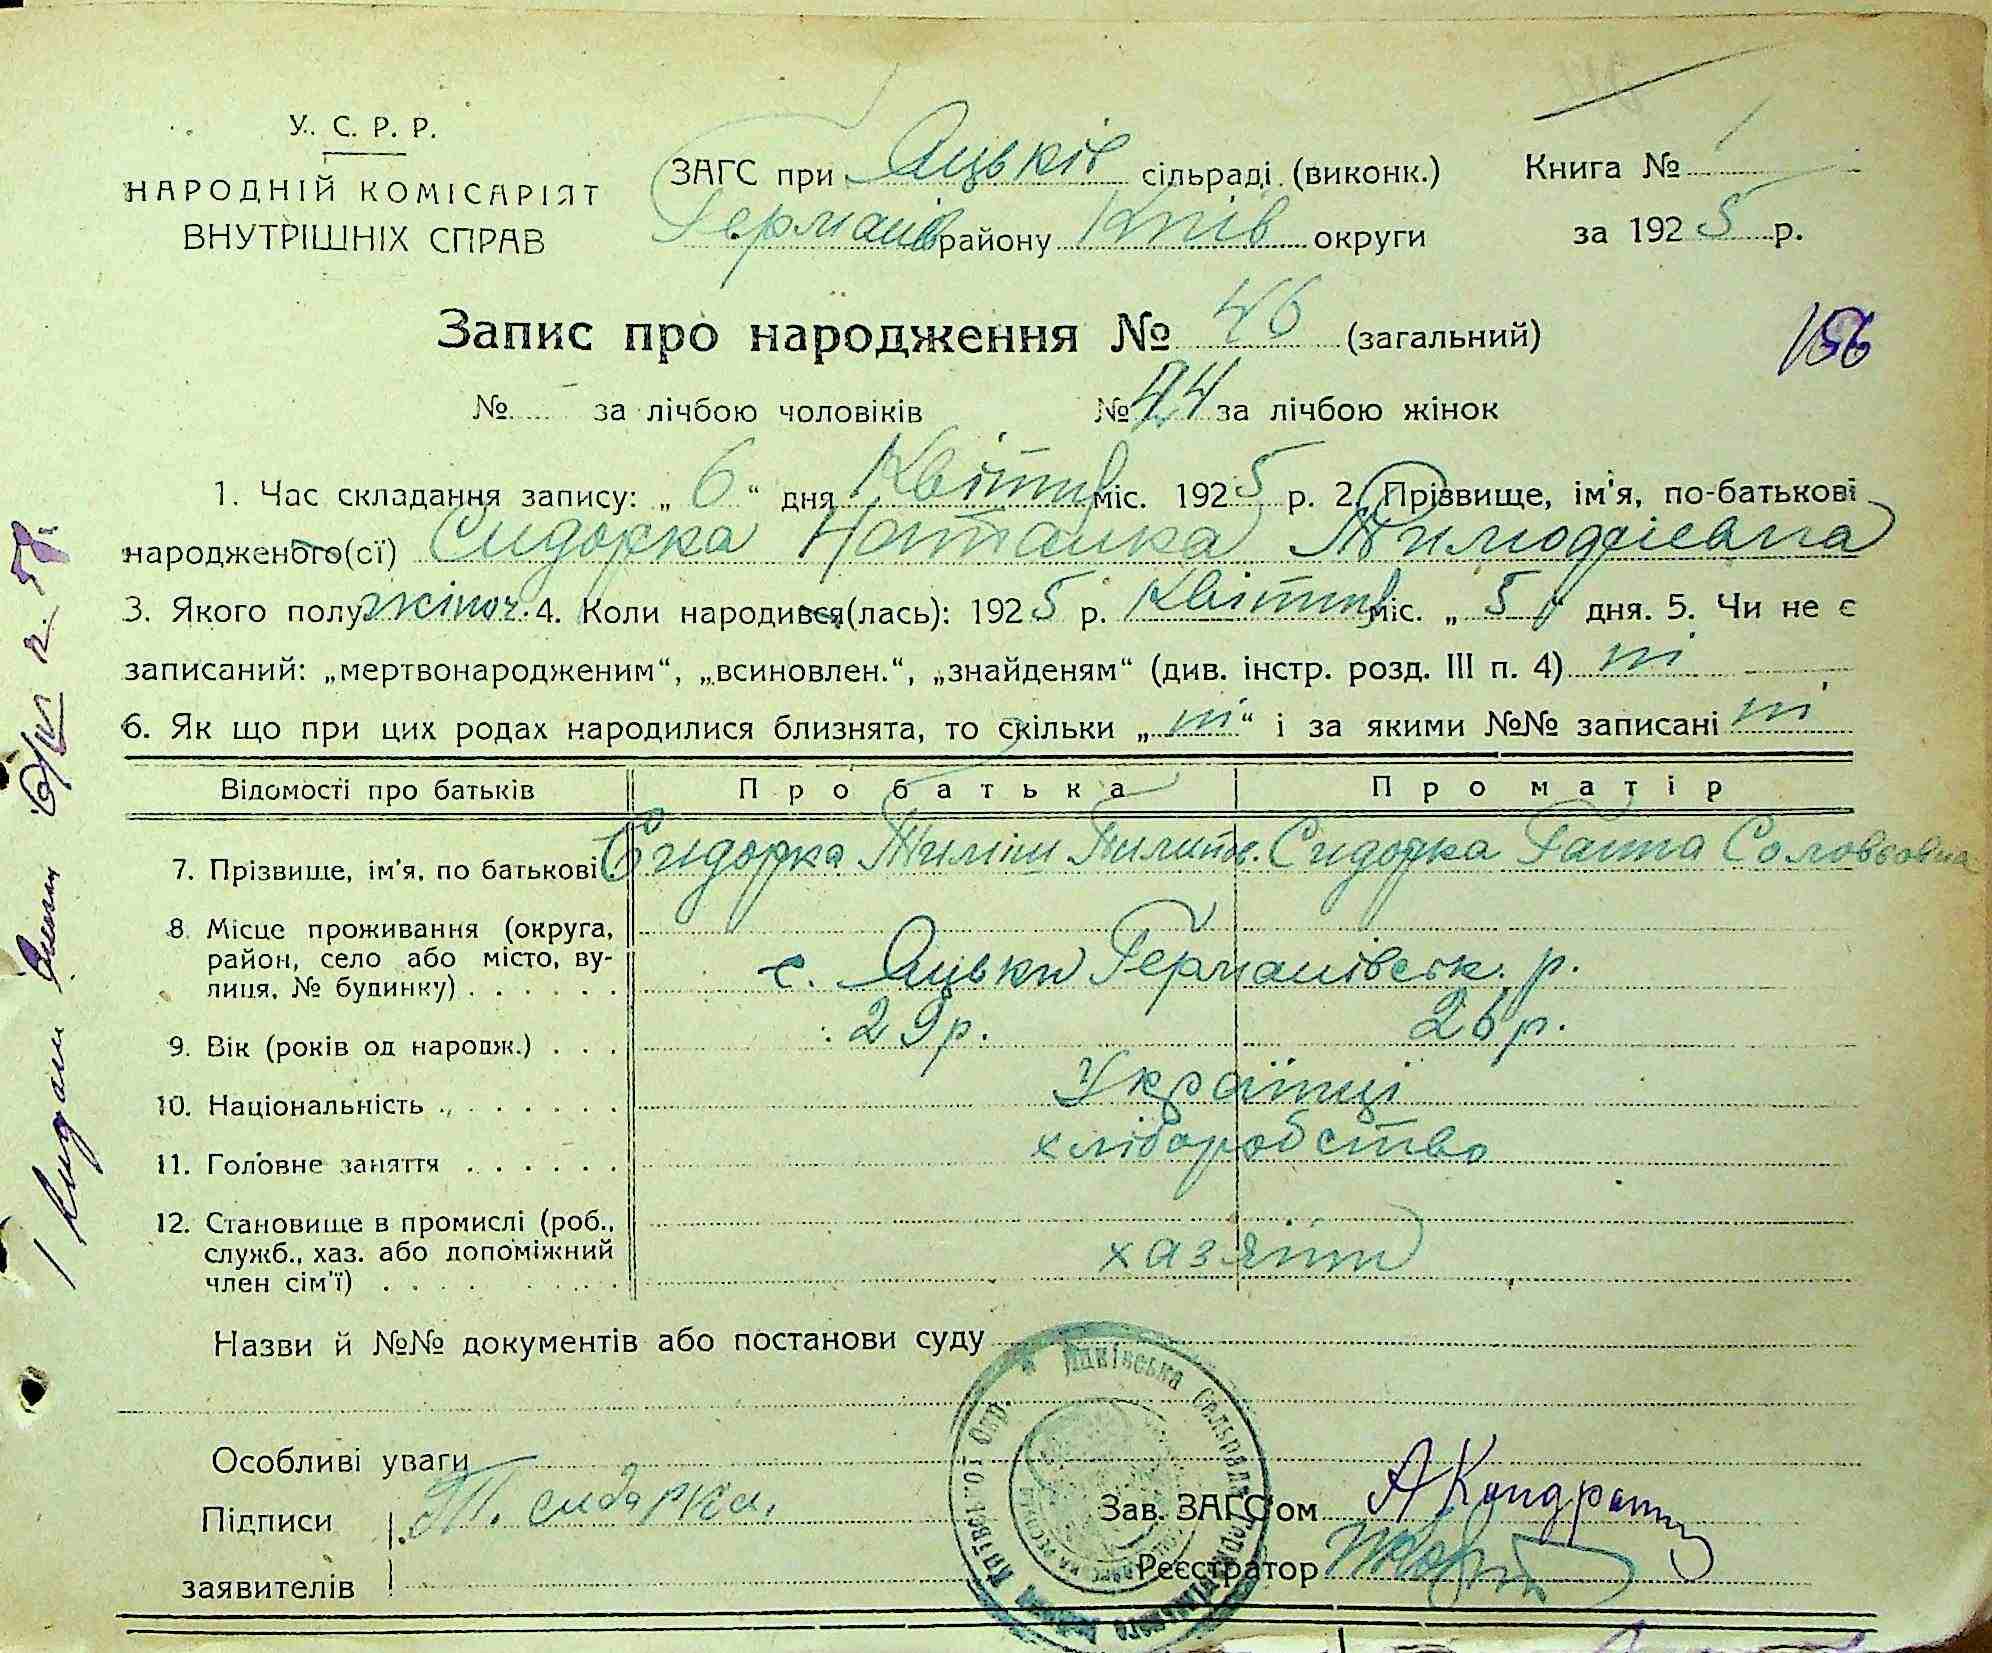 У. С. Р. Р.
НАРОДНІЙ КОМІСАРІЯТ
ВНУТРІШНІХ СПРАВ
ЗАГС при Яцьків сільраді (виконк.)
Германів району Київ округи
Книга №
за 1925 р.
Запис про народження № 46 (загальний)
156
№ — за лічбою чоловіків № 24 за лічбою жінок
1. Час складання запису: „6“ дня Квітня міс. 1925 р. 2. Прізвище, ім'я, по-батькові
народженого(сї) Сидорка Наталка
3. Якого полу жіноч. 4. Коли народився(лась): 1925 р. Квітня міс. „5“ дня. 5. Чи не є
записаний: „мертвонародженим“, „всиновлен.“, „знайденям“ (див. інстр. розд. III п. 4) ні
6. Як що при цих родах народилися близнята, то скільки „ні“ і за якими №№ записані ні
Відомості про батьків Про батька Про матір
7. Прізвище, ім'я, по батькові Сидорка Пилипов. Сидорка Ганна Соловьовна
8. Місце проживання (округа,
район, село або місто, ву-
лиця, № будинку) . . . . . . с. Яцьки Германівськ. р.
9. Вік (років од народж.) . . . 29 р. 26 р.
10. Національність . . . . . . . Українці
11. Головне заняття . . . . . . хліборобство
12. Становище в промислі (роб.,
служб., хаз. або допоміжний
член сім'ї) . . . . . . . . хазяїн
Назви й №№ документів або постанови суду
Яцківська Сельрада
Особливі уваги
Підписи Т. сидорка.
заявителів
Зав. ЗАГС'ом А Кондрат
Реєстратор